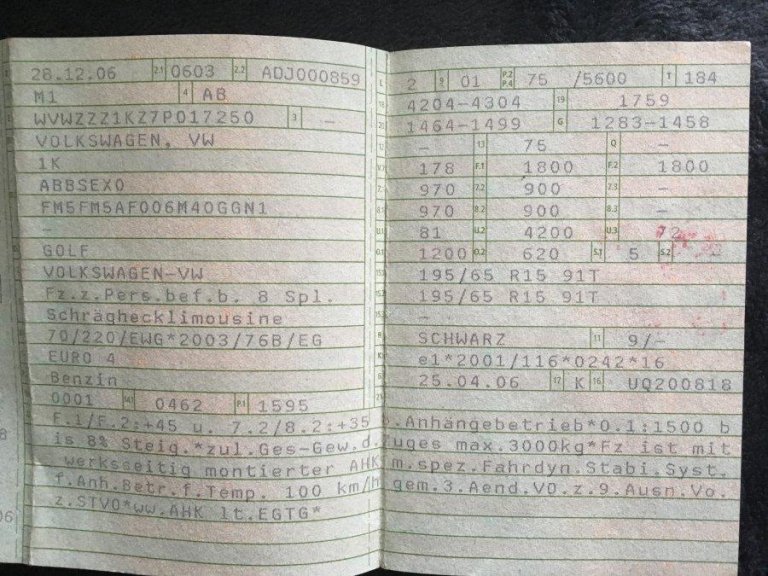 28.12.06 2.1 0603 2.2 ADJ000859
M1 4 AB
WVWZZZ1KZ7P017250 3 –
VOLKSWAGEN, VW
1K
ABBSEX0
FM5FM5AF006M4OGGN1
–
GOLF
VOLKSWAGEN-VW
Fz.z.Pers.bef.b. 8 Spl.
Schräghecklimousine
70/220/EWG*2003/76B/EG
EURO 4
Benzin
0001 0462 P.1 1595
F.1/F.2:+45 u. 7.2/8.2:+35
is 8% Steig.*zul.Ges-Gew.d.
werksseitig montierter AHK
f.Anh.Betr.f.Temp. 100 km/h
z.STVO*ww.AHK lt.EGTG*
2 9 01 P.2 P.4 75 /5600 T 184
4204-4304 19 1759
1464-1499 G 1283-1458
– 13 75 Q –
178 F.1 1800 F.2 1800
970 7.2 900 7.3 –
970 8.2 900 8.3 –
81 U.2 4200 U.3 72
1200 O.2 620 S.1 5 S.2
195/65 R15 91T
195/65 R15 91T
–
SCHWARZ 11 9/–
e1*2001/116*0242*16
25.04.06 17 K 16 UQ200818
b.Anhängebetrieb*0.1:1500 b
zuges max.3000kg*Fz ist mit
m.spez.Fahrdyn.Stabi.Syst.
gem.3.Aend.VO.z.9.Ausn.Vo.